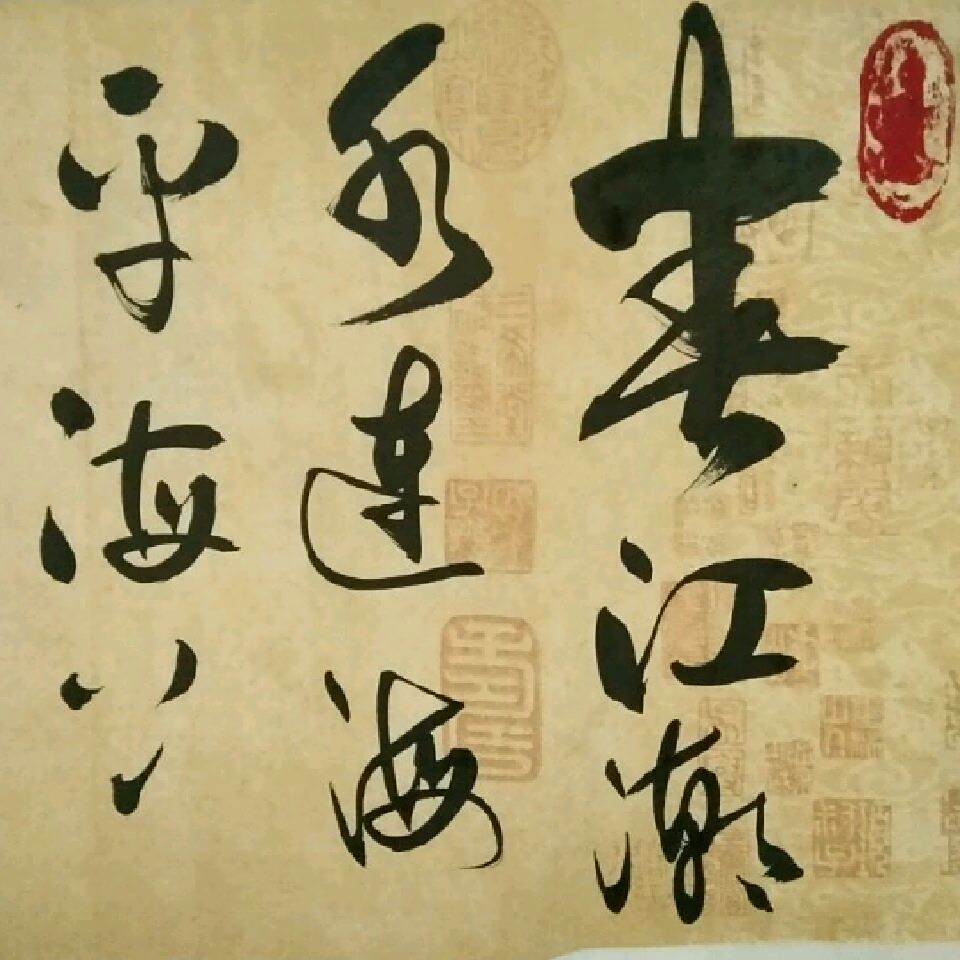 春江潮
水連海
平海上